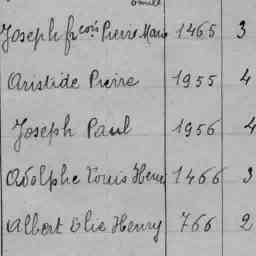 Joseph frcois Pierre Marie 1465 3
Aristide Pierre 1955 4
Joseph Paul 1956 4
Adolphe Louis Henri 1466 3
Albert Elie Henry 766 2